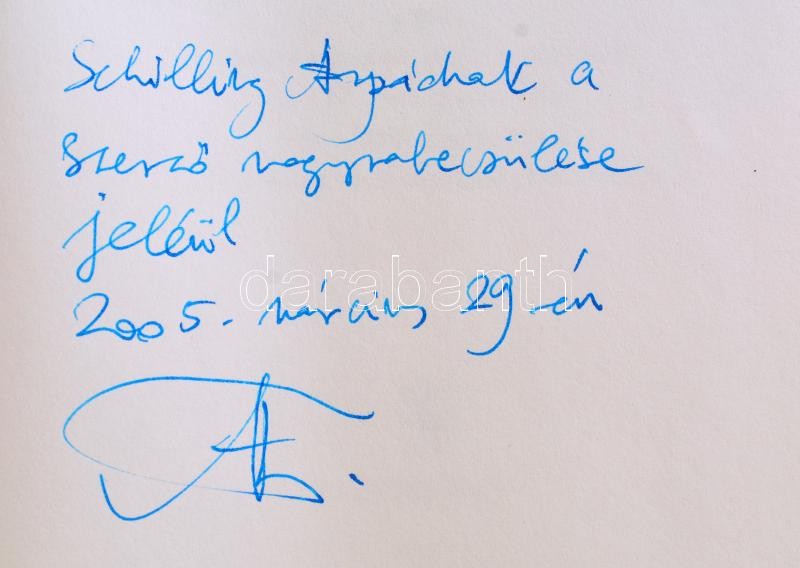 Schilling Árpádnak a
szerző nagyrabecsülése
jeléül
darabanth
2005. március 29-én